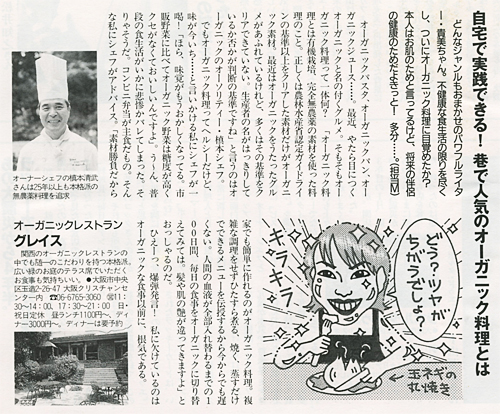 自宅で実践できる！ 巷で人気のオーガニック料理とは
どんなジャンルもおまかせのパワフルライタ
ー・貴美ちゃん。不健康な食生活の限りを尽く
し、ついにオーガニック料理に目覚めたか？
本人はお肌のためと言ってるけど、将来の伴侶
の健康のためだよきっと…多分…。（担当M）
オーガニックパスタ、オーガニックパン、オー
ガニックジュース……。最近、やたら目につく
オーガニックと名の付くグルメ。そもそもオー
ガニック料理って一体何？「オーガニック料
理とは有機栽培、完全無農薬の素材を使った料
理のこと。正しくは農林水産省認定ガイドライ
ンの基準以上をクリアした素材だけがオーガニ
ック素材。最近はオーガニックをうたったグル
メがあふれているけれど、多くはその基準をク
リアできていない。生産者の名がはっきりして
いるか否かが判断の基準ですね」と言うのはオ
ーガニックのオーソリティー・槙本シェフ。
でもオーガニック料理ってヘルシーだけど、
味が今いち……と言いかける私にシェフが一
喝！「ほら、味覚がもうおかしくなってる。市
販野菜に比べてオーガニック野菜は糖度が高く
クセがなくておいしいんですよ」。ううっ、普
段の食生活がいかに悲惨かバレてしまった。そ
りゃそうだ、コンビニ弁当が主食だもの。そん
な私にシェフがアドバイス。「素材勝負だから
家でも簡単に作れるのがオーガニック料理。複
雑な調理をせずひたすら煮る、焼く、蒸すだけ
でできるメニューを伝授するから今からでも遅
くない。人間の血液が全部入れ替わるまでの1
00日間、毎日の食事をオーガニックに切り替
えてみては。髪や肌の艶が違ってきますよ」と
おっしゃるのだ。
ひえーっ、爆弾発言！ 私に欠けているのは
オーガニックな食事以前に、根気である。
オーナーシェフの槙本清武
さんは25年以上も本格派の
無農薬料理を追求
オーガニックレストラン
グレイス
関西のオーガニックレストランの
中でも随一のこだわりを持つ本格派。
広い緑のお庭のテラス席でいただく
お食事も気持ちいい。●大阪市中央
区玉造2-26-47大阪クリスチャンセ
ンター内 ☎06-6765-3060 営11：
30〜14：00、17：30〜21：00 日・
祝日定休 昼ランチ1100円〜、ディ
ナー3000円〜。ディナーは要予約
どうっツヤが
ちがうでしょ？
キラキラ
←玉ネギの
丸焼き